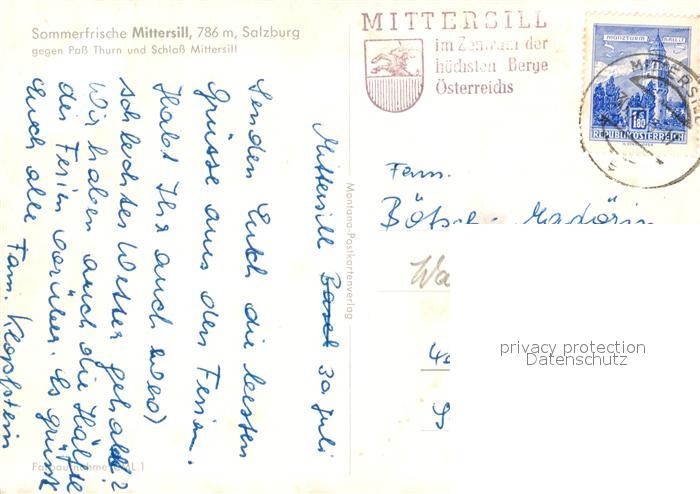 Sommerfrische Mittersill, 786 m, Salzburg
gegen Paß Thurn und Schloß Mittersill
MITTERSILL
im Zentrum der
höchsten Berge
Österreichs
MÜNZTURM HALL I. T.
1.80
REPUBLIK ÖSTERREICH
MITTERSILL
Mittersill Basel 30 Juli
Senden Euch die besten
Grüsse aus den Ferien.
Habt Ihr auch so
schlechtes Wetter gehabt?
Wir haben auch die Hälfte
der Ferien vorüber. Es grüsst
Euch alle Fam. Klopfstein
Fam.
Montana-Postkartenverlag
privacy protection
Datenschutz
1